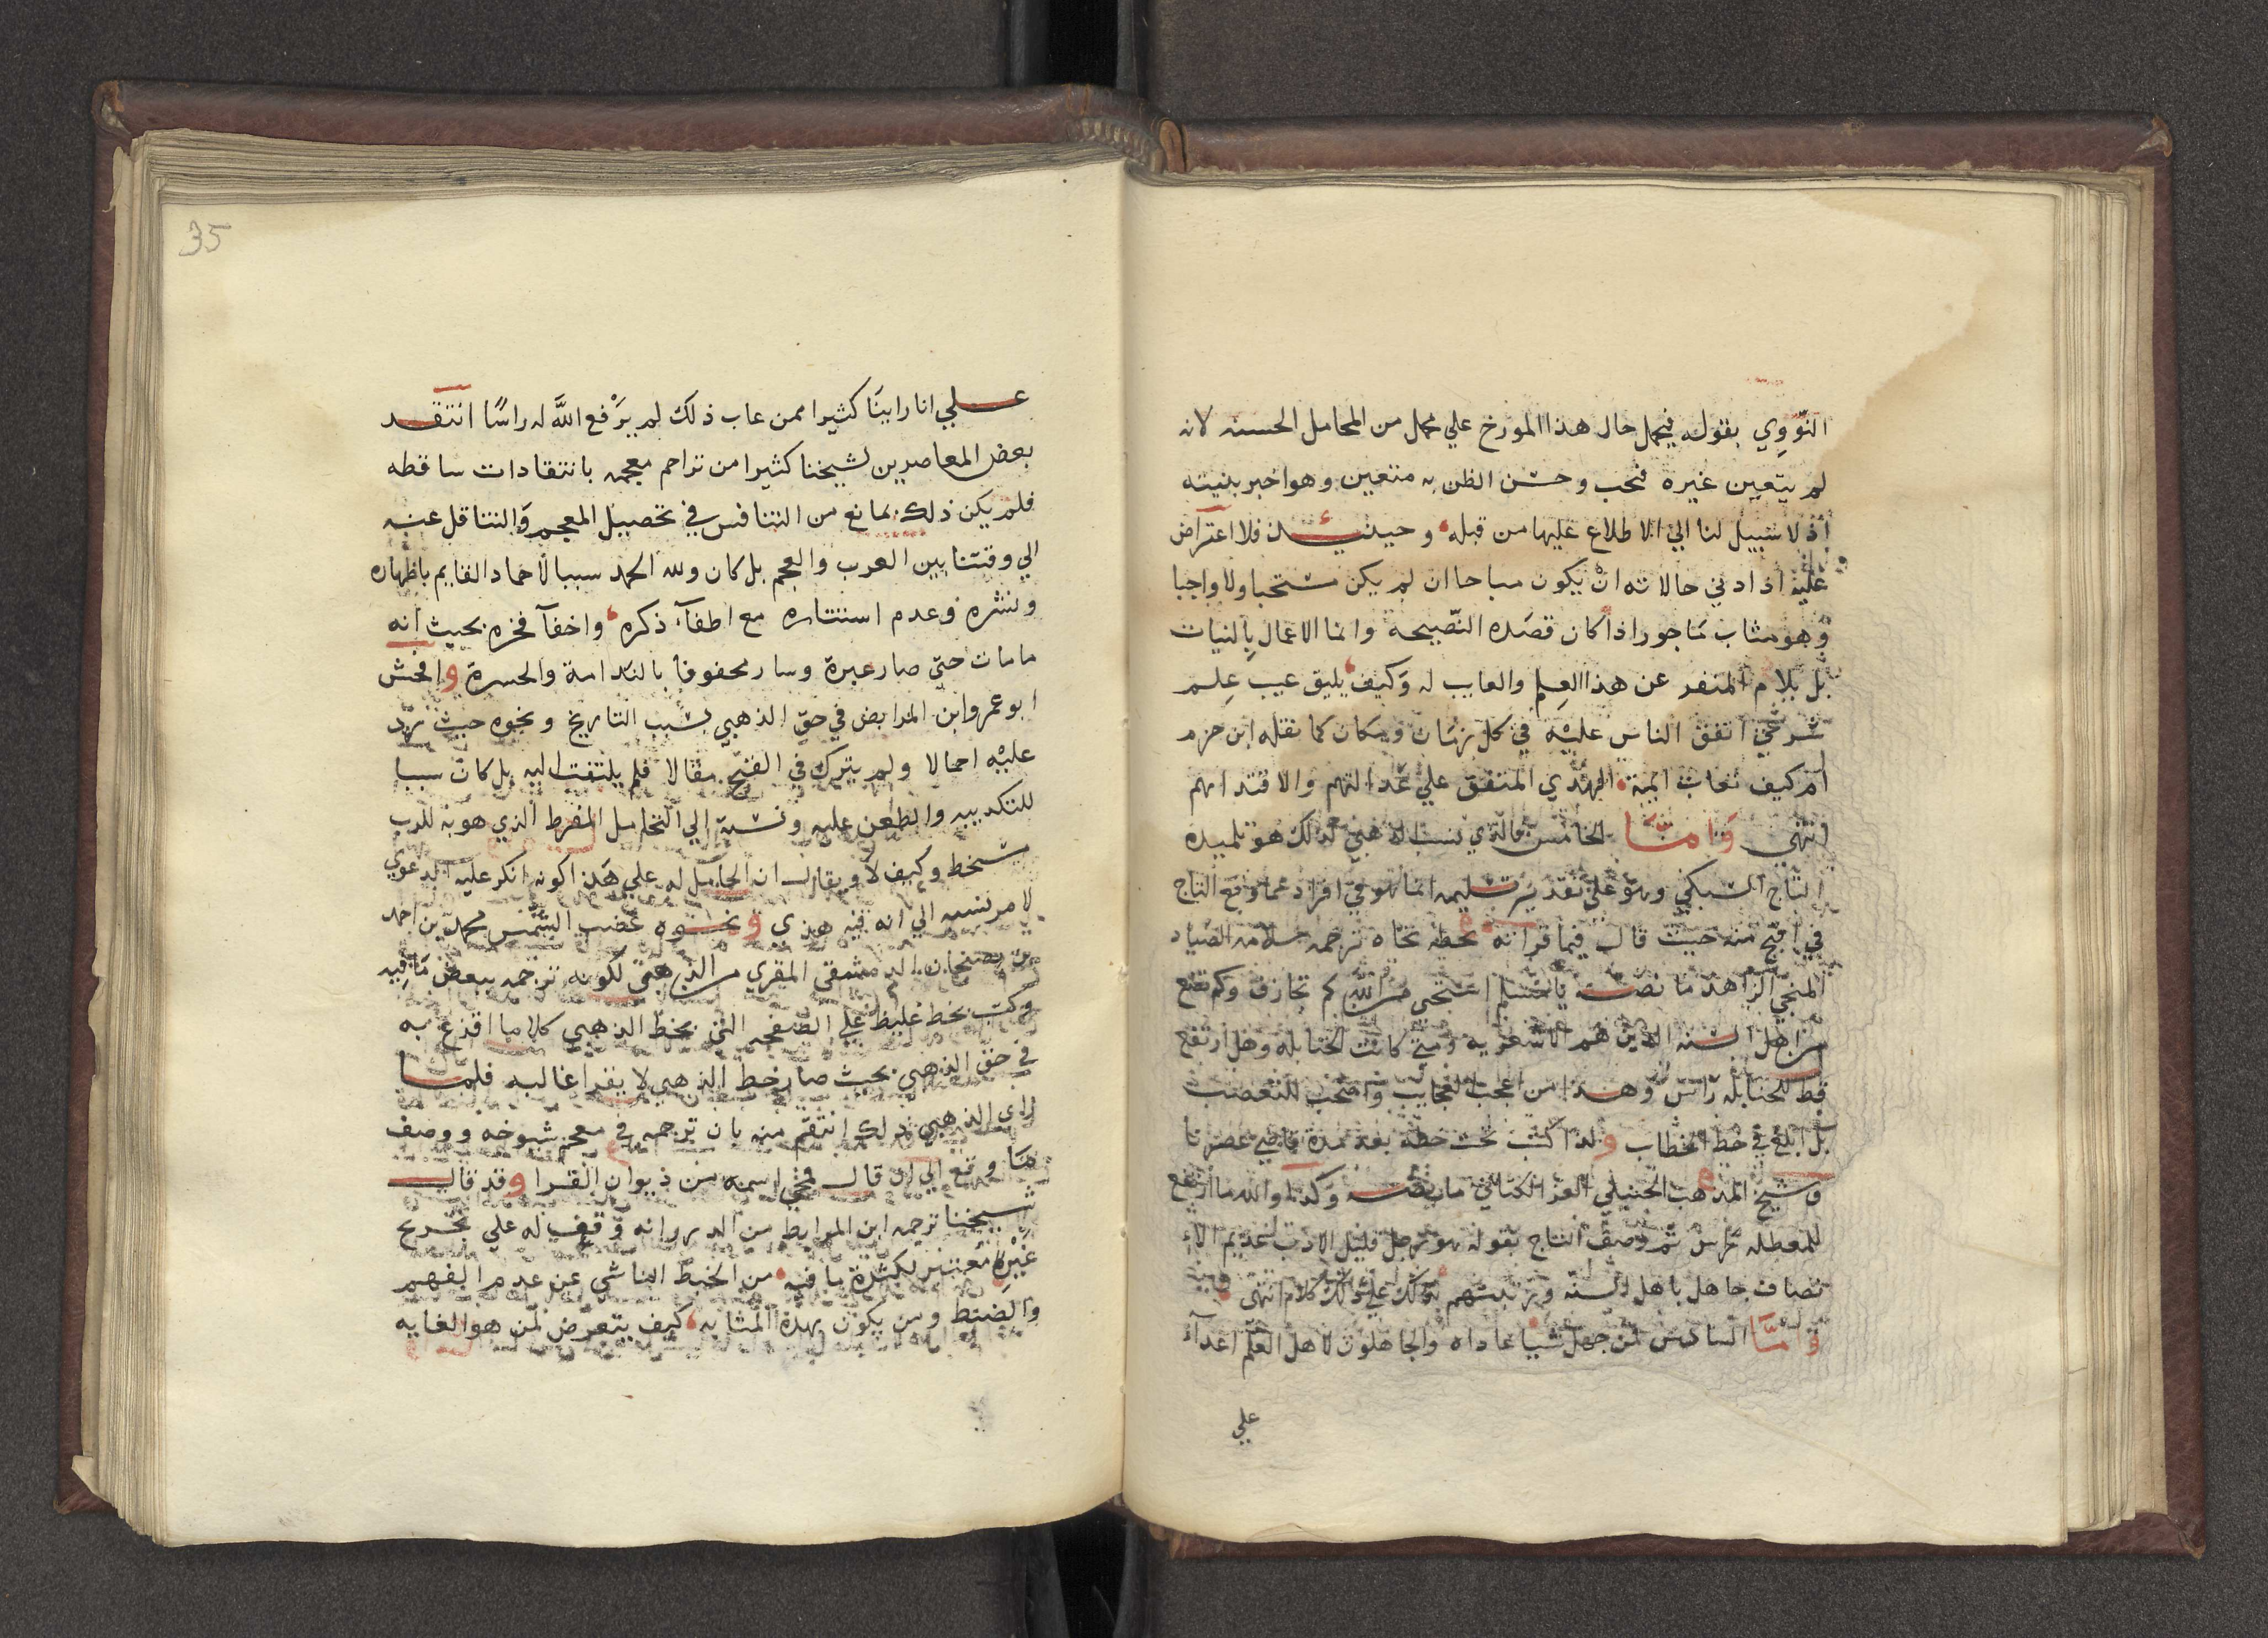 النّووي بقوله فيحمل حال هذا المورخ علي محمل من المحامل الحسنه لانه
لم يتعين غيره فحب وحسن الظن به متعين وهو اخبر بنيته
اذ لا سبيل لنا الي الاطلاع عليها من قبله وحينئذ فلا اعتراض
عليه اذ ادني حالاته انْ يكون مباحا ان لم يكن مستحبا ولا واجبا
وهو مثاب ماجور اذا كان قصده النّصيحة وانما الاعمال بالنيات
بل يلام المنفر عن هذا العلم والعايب له وكيف يليق عيب عِلم
شرعي اتفق الناس عليْه في كل زمان ومكان كما نقله ابن حزم
ام كيف تعاب ايمة الهدي المتفق علي عدالتهم والاقتدا بهم
انتهى وَامّا الخامس فالذي نسب الذهبي لذلك هو تلميذه
التاج السبكي وهو علي تقدير تسليمه انما هو في افراد مما وقع التاج
في اقبح منه حيث قال فيما قراته بخطه تجاه ترجمه سلامه الصياد
المنبجي الزاهد ما نصه يا مسلم استحي من الله كم تجازف وكم تضع
من اهل السنه الذين هم الاشعريه ومتي كانت الحنابله وهل ارتفع
قط للحنابلة راس وهذا من اعجب العجايب واصحب للتعصب
بل ابلغ في خطا الخطاب ولذا كتب تحت خطه بعد مدة قاضي عصرنا
وشيخ المذهب الحنبلي العز الكناني ما نصه وكذا والله ما ارتفع
للمعطله راس ثم وصف التاج بقوله هو رجل قليل الادب عديم الا
نصاف جاهل باهل السنه ورتبتهم يدلك علي ذلك كلامه انتهى
وامّا السادس فمن جهل شيا عاداه والجاهلون لاهل العلم اعدآء
علي
35
علي انا راينَا كثيرا ممن عاب ذلك لم يرْفع اللَّه له راسًا انتقد
بعض المعاصرين لشيخنا كثيرا من تراجم معجمه بانتقادات ساقطه
فلم يكن ذلك بمانع من التنافس في تحصيل المعجم والتناقل عنه
الي وقتنا بين العرب والعجم بل كان ولله الحمد سببا لأخماد القايم باظهاره
ونشره وعدم استتاره مع اطفآء ذكره واخفآ فخره بحيث انه
ما مات حتي صار عبرة وسار محفوفا بالندامة والحسرة وافحش
ابو عمرو ابن المرابض في حق الذهبي بسبب التاريخ ونحوه حيث رد
عليْه احمالا ولم يترك في القبح مقالا فلم يلتفت اليه بل كان سببا
للتكذيبه والطعن عليه ونسبة الي التحامل المفرط الذي هو به للرب
سخط وكيف لا ويقال ان الحامل له علي هذا كونه انكر عليه الدعوي
لامر نسبه الي انه فيه هذى ونحوه غضب الشمس محمد بن احمد
بن بصخان الدمشقي المقري من الذهبي لكونه ترجمه ببعض ما فيه
وكتب بخط غليظ علي الصفحه التي بخط الذهبي كلاما اقذع به
في حق الذهبي بحيث صار خط الذهبي لا يقرا غالبه فلما
راي الذهبي ذلك انتقم منه بان ترجمه في معجم شيوخه ووصف
ما وقع الي ان قال فمحي اسمه من ديوان القرا وقد قال
شيخنا ترجمه ابن المرابط من الدرر وانه وقف له علي تخريج
غير معتبر لكثرة ما فيه من الخبط الناشي عن عدم الفهم
والضبط ومن يكون بهذه المثابه كيف يتعرض لمن هو الغايه